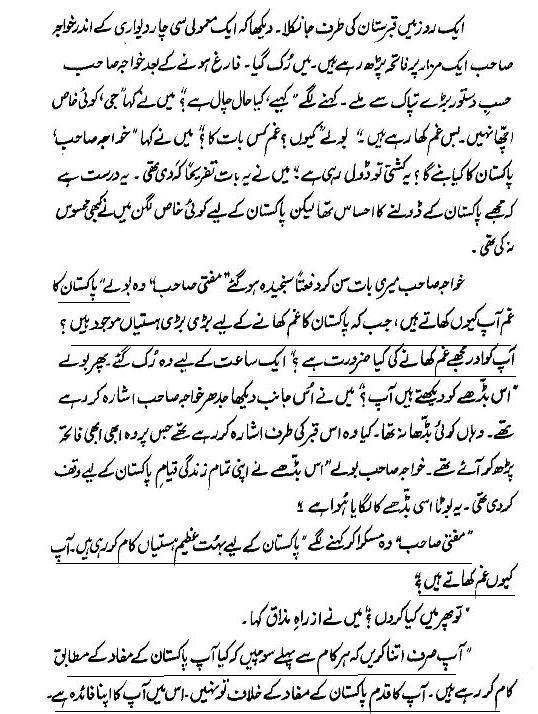 ایک روز میں قبرستان کی طرف جا نکلا۔ دیکھا کہ ایک معمولی سی چار دیواری کے اندر خواجہ
صاحب ایک مزار پر فاتحہ پڑھ رہے ہیں۔ میں رک گیا۔ فارغ ہونے کے بعد خواجہ صاحب
حسبِ دستور بڑے تپاک سے ملے۔ کہنے لگے "کہیے، کیا حال چال ہے؟" میں نے کہا "جی، کوئی خاص
اچھا نہیں۔ بس غم کھا رہے ہیں۔" بولے "کیوں؟ غم کس بات کا؟" میں نے کہا "خواجہ صاحب،
پاکستان کا کیا بنے گا؟ یہ کشتی تو ڈول رہی ہے۔" میں نے یہ بات تفریحاً کہہ دی تھی۔ یہ درست ہے
کہ مجھے پاکستان کے ڈولنے کا احساس تھا لیکن پاکستان کے لیے کوئی خاص لگن میں نے کبھی محسوس
نہ کی تھی۔
خواجہ صاحب میری بات سن کر دفعتاً سنجیدہ ہو گئے "مفتی صاحب" وہ بولے "پاکستان کا
غم آپ کیوں کھاتے ہیں، جب کہ پاکستان کا غم کھانے کے لیے بڑی بڑی ہستیاں موجود ہیں؟
آپ کو اور مجھے غم کھانے کی کیا ضرورت ہے؟" ایک ساعت کے لیے وہ رک گئے پھر بولے
"اس بڈھے کو دیکھتے ہیں آپ؟" میں نے اُس جانب دیکھا جدھر خواجہ صاحب اشارہ کر رہے
تھے۔ وہاں کوئی بڈھا نہ تھا۔ کیا وہ اس قبر کی طرف اشارہ کر رہے تھے جس پر وہ ابھی ابھی فاتحہ
پڑھ کر آئے تھے۔ خواجہ صاحب بولے "اس بڈھے نے اپنی تمام زندگی قیامِ پاکستان کے لیے وقف
کر دی تھی۔ یہ بوٹا اسی بڈھے کا لگایا ہُوا ہے۔"
"مفتی صاحب" وہ مسکرا کر کہنے لگے "پاکستان کے لیے بہت عظیم ہستیاں کام کر رہی ہیں۔ آپ
کیوں غم کھاتے ہیں؟"
"تو پھر میں کیا کروں؟" میں نے ازراہِ مذاق کہا۔
"آپ صرف اتنا کریں کہ ہر کام سے پہلے سوچیں کہ کیا آپ پاکستان کے مفاد کے مطابق
کام کر رہے ہیں۔ آپ کا قدم پاکستان کے مفاد کے خلاف تو نہیں۔ اس میں آپ کا اپنا فائدہ ہے۔